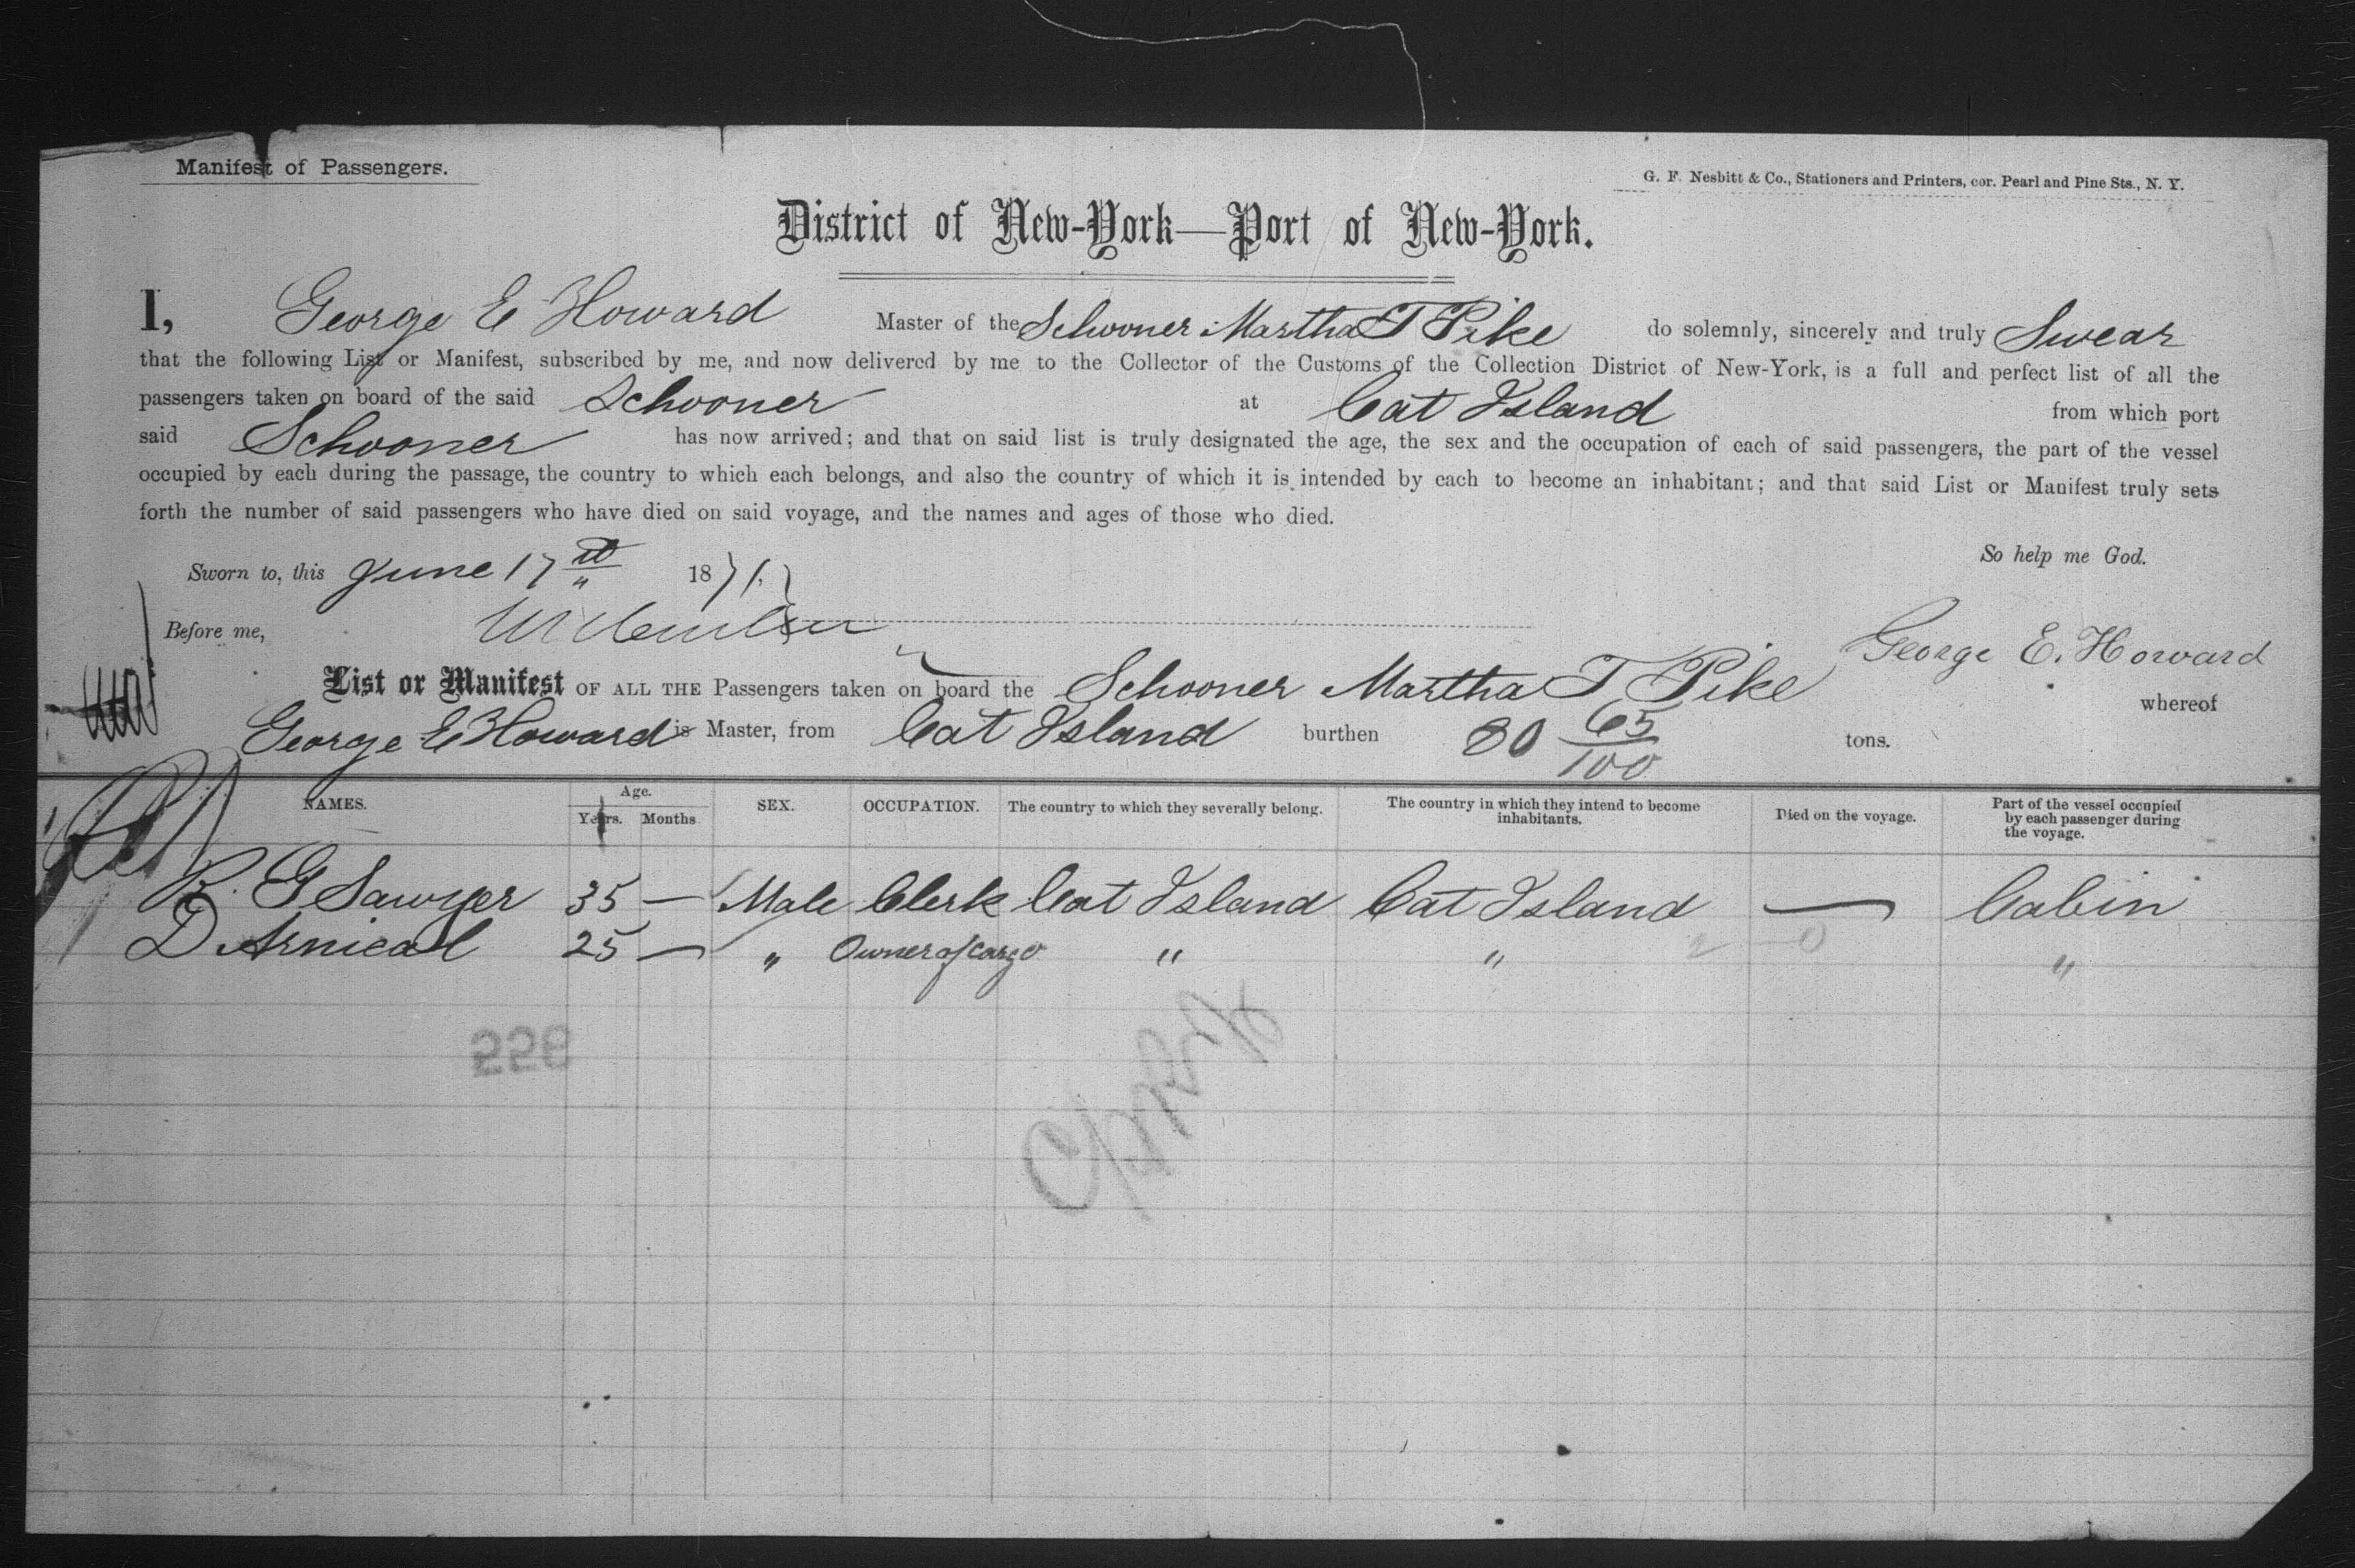 Manifest of Passengers.
G. F. Nesbitt & Co., Stationers and Printers, cor. Pearl and Pine Sts., N. Y.
District of New-York—Port of New-York.
I, George E Howard Master of the Schooner Martha T Pike do solemnly, sincerely and truly Swear
that the following List or Manifest, subscribed by me, and now delivered by me to the Collector of the Customs of the Collection District of New-York, is a full and perfect list of all the
passengers taken on board of the said Schooner at Cat Island from which port
said Schooner has now arrived; and that on said list is truly designated the age, the sex and the occupation of each of said passengers, the part of the vessel
occupied by each during the passage, the country to which each belongs, and also the country of which it is intended by each to become an inhabitant; and that said List or Manifest truly sets
forth the number of said passengers who have died on said voyage, and the names and ages of those who died.
So help me God.
Sworn to, this June 17th 1871.
Before me,
George E. Howard
List or Manifest OF ALL THE Passengers taken on board the Schooner Martha T Pike whereof
George E Howard is Master, from Cat Island burthen 80 65/100 tons.
NAMES. Age. Years. Months SEX. OCCUPATION. The country to which they severally belong. The country in which they intend to become inhabitants. Died on the voyage. Part of the vessel occupied by each passenger during the voyage.
R. G Sawyer 35 — Male Clerk Cat Island Cat Island — Cabin
D Arnical 25 — " Owner of cargo " " "
2 — 0